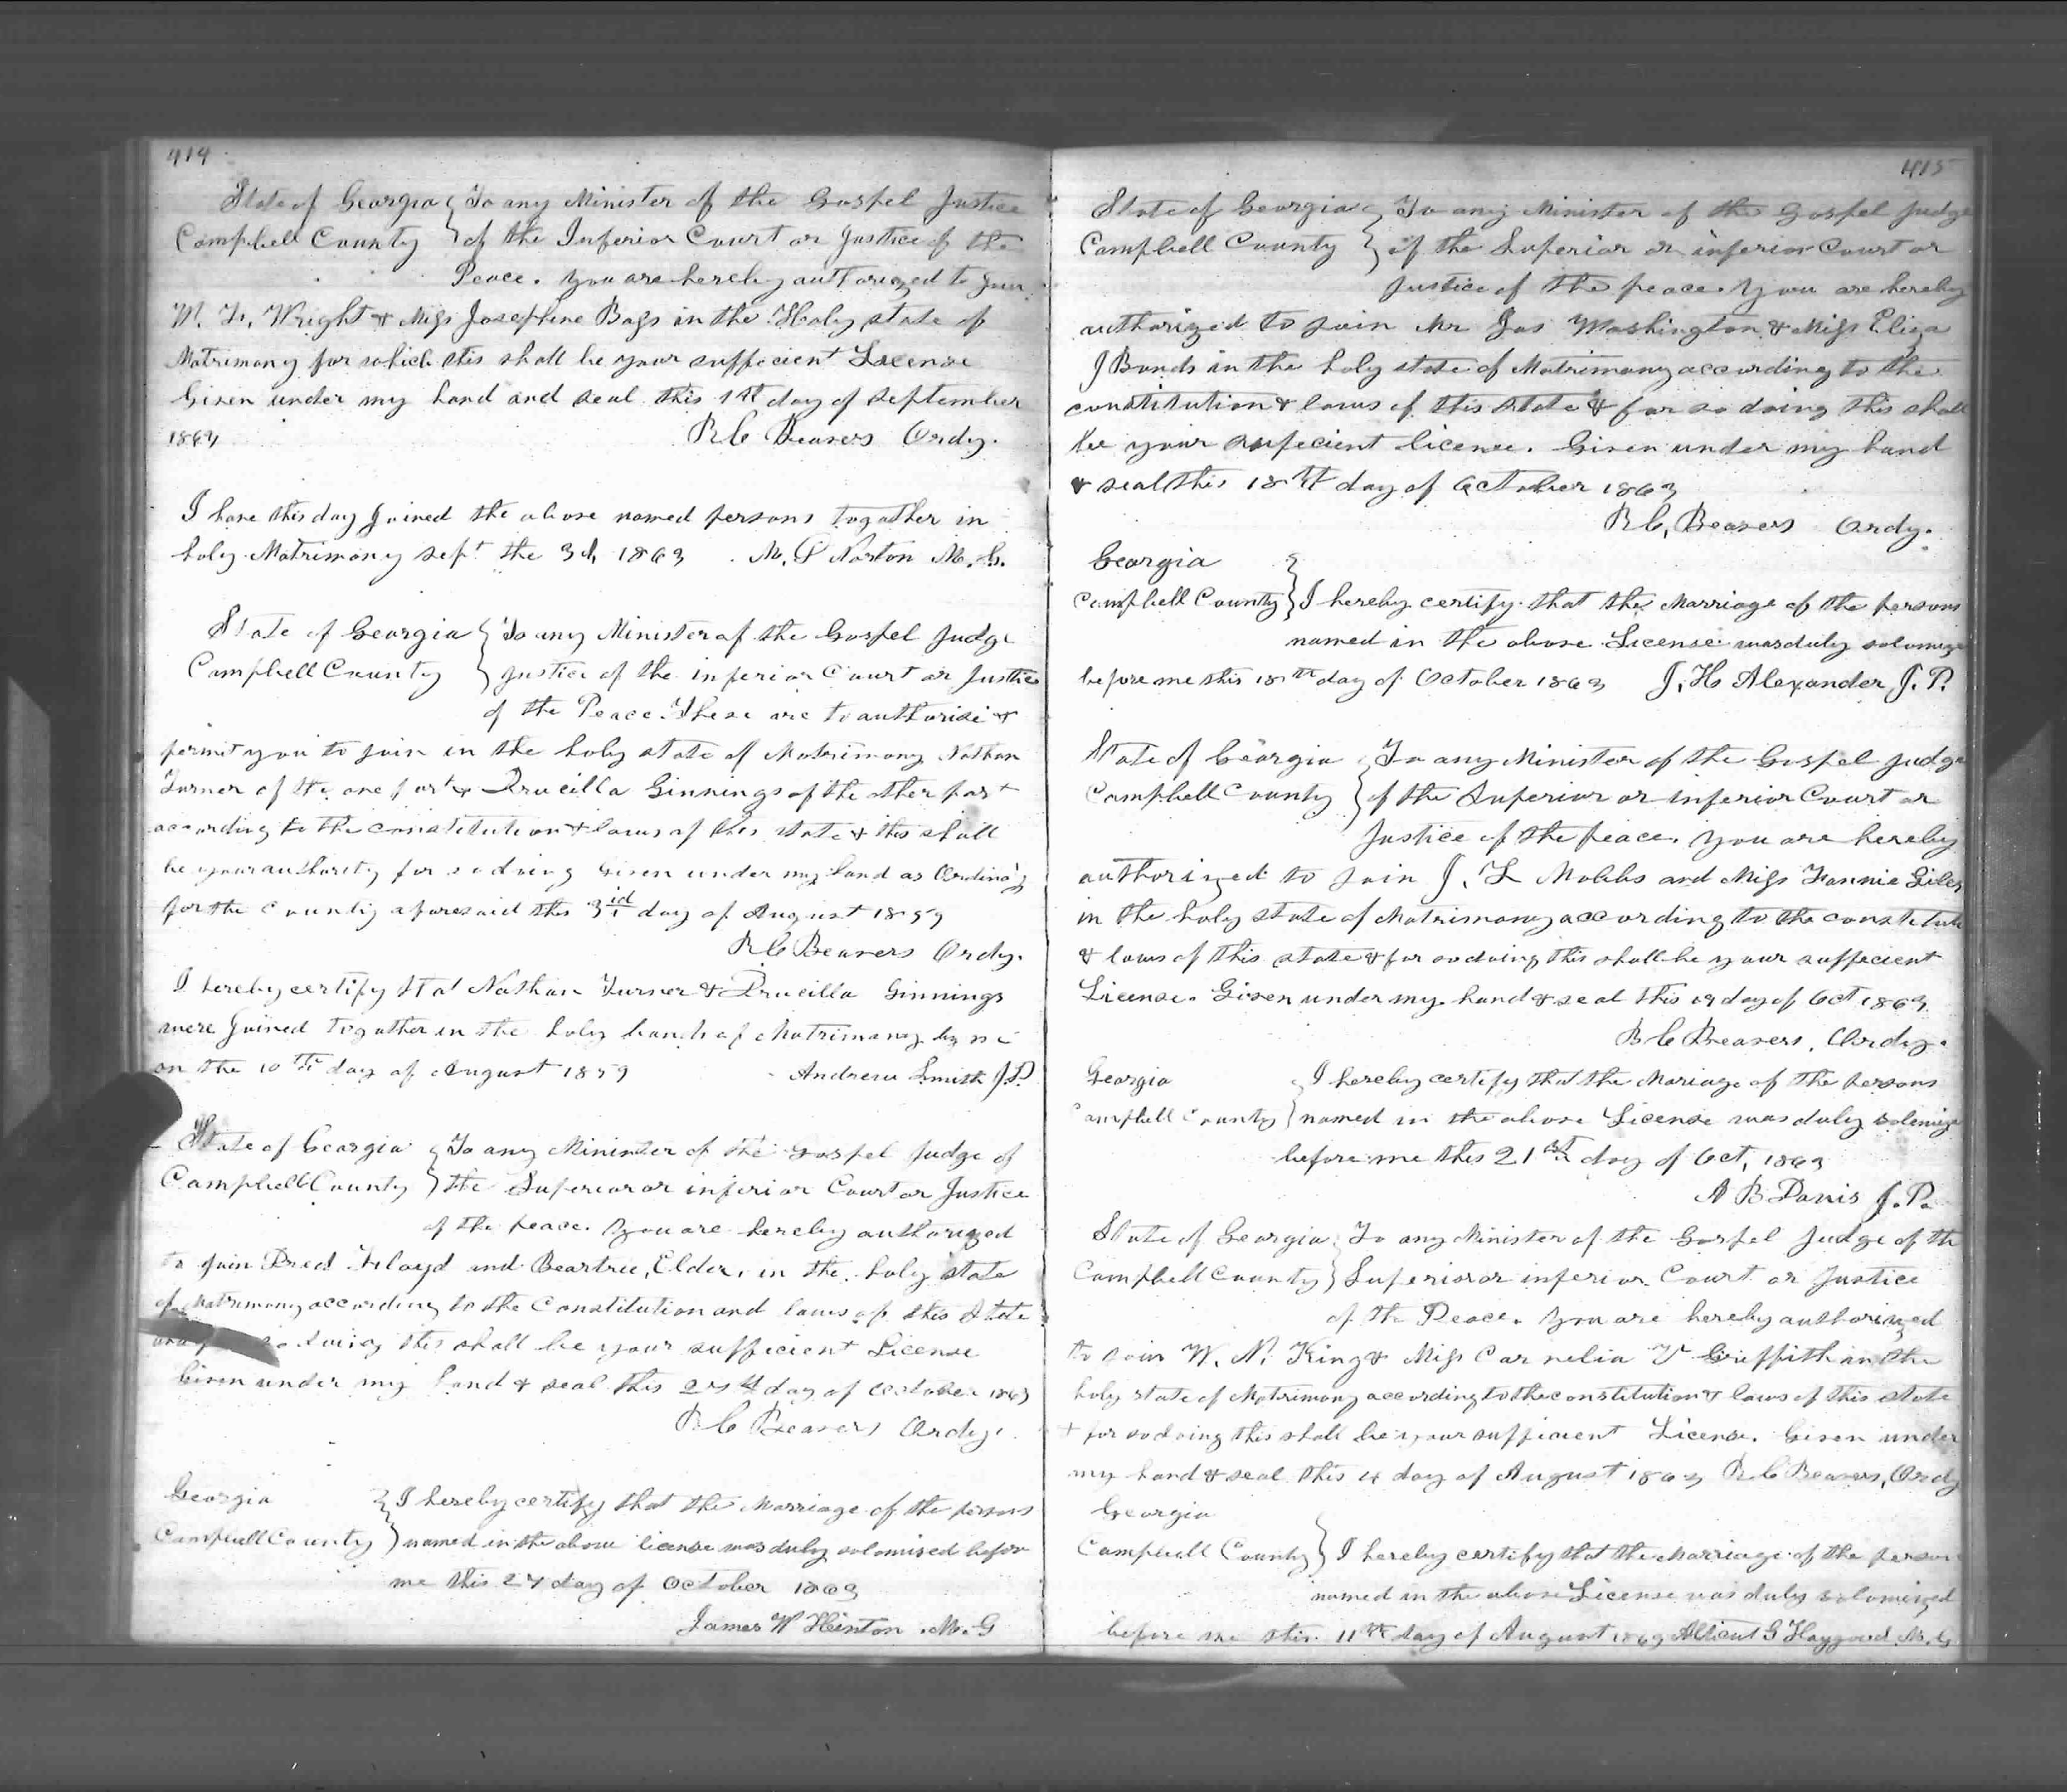 414
State of Georgia { To any Minister of the Gospel Justice
Campbell County } of the Inferior Court or Justice of the
Peace. You are hereby authorized to join
W. F. Wright & Miss Josephine Bags in the Holy state of
Matrimony for which this shall be your suffecient License
Given under my hand and seal this 1st day of September
1863 R C Beavers Ordy.
I have this day joined the above named persons togather in
holy Matrimony Sept the 3d, 1863 M. P Norton M. G.
State of Georgia { To any Minister of the Gospel Judge
Campbell County } Justice of the inferior Court or Justice
of the Peace. These are to authorise &
permit you to join in the holy state of Matrimony Nathan
Turner of the one part & Drucilla Ginnings of the other part
according to the constitution & laws of this state & this shall
be your authority for so doing Given under my hand as Ordinary
for the County aforesaid this 3rd day of August 1859
R C Beavers Ordy.
I hereby certify that Nathan Turner & Drucilla Ginnings
were joined togather in the holy bands of Matrimony by me
on the 10th day of August 1859 Andrew Smith J.P.
State of Georgia { To any Minister of the Gospel Judge of
Campbell County } the Superior or inferior Court or Justice
of the peace. You are hereby authorized
to join Dred Floyd and Beartree, Elder, in the holy state
of Matrimony according to the Constitution and laws of this State
so doing this shall be your sufficient License
Given under my hand & seal this day of October 1863
R C Beavers Ordy.
Georgia } I hereby certify that the Marriage of the persons
Campbell County } named in the above license was duly solomised before
me this 27 day of October 1863
James W Hinton M. G
415
State of Georgia } To any Minister of the Gospel Judge
Campbell County } of the Superior or inferior Court or
Justice of the peace. You are hereby
authorized to join Mr Jas Washington & Miss Eliza
J Bunds in the holy state of Matrimony according to the
constitution & laws of this State & for so doing this shall
be your supecient licence. Given under my hand
& seal this 18th day of October 1863
R C, Beavers Ordy.
Georgia }
Campbell County } I hereby certify that the Marriage of the persons
named in the above License was duly solomize
before me this 18th day of October 1863 J. H Alexander J. P.
State of Georgia { To any Minister of the Gospel Judge
Campbell County } of the Superior or inferior Court or
Justice of the peace. You are hereby
authorized to join J. L Mobbs and Miss Fannie Giles
in the holy state of Matrimony according to the constitute
& laws of this state & for so doing this shall be your suffecient
License. Given under my hand & seal this 19 day of Oct 1863
R C Beavers, Ordy.
Georgia { I hereby certify that the Mariage of the persons
Campbell County } named in the above License was duly solemize
before me this 21st day of Oct, 1863
A B Davis J. P.
State of Georgia } To any Minister of the Gospel Judge of th
Campbell County } Superior or inferior Court or Justice
of the Peace. You are hereby authorized
to join W. N. King & Miss Carnelia V Griffith in the
holy state of Matrimony according to the constitution & laws of this state
& for so doing this shall be your sufficient License. Given under
my hand & seal this 4 day of August 1863 R C Beavers, Ordy
Georgia
Campbell County } I hereby certify that the Marriage of the person
named in the above License was duly solomized
before me this 11th day of August 1863 G Haygood M. G